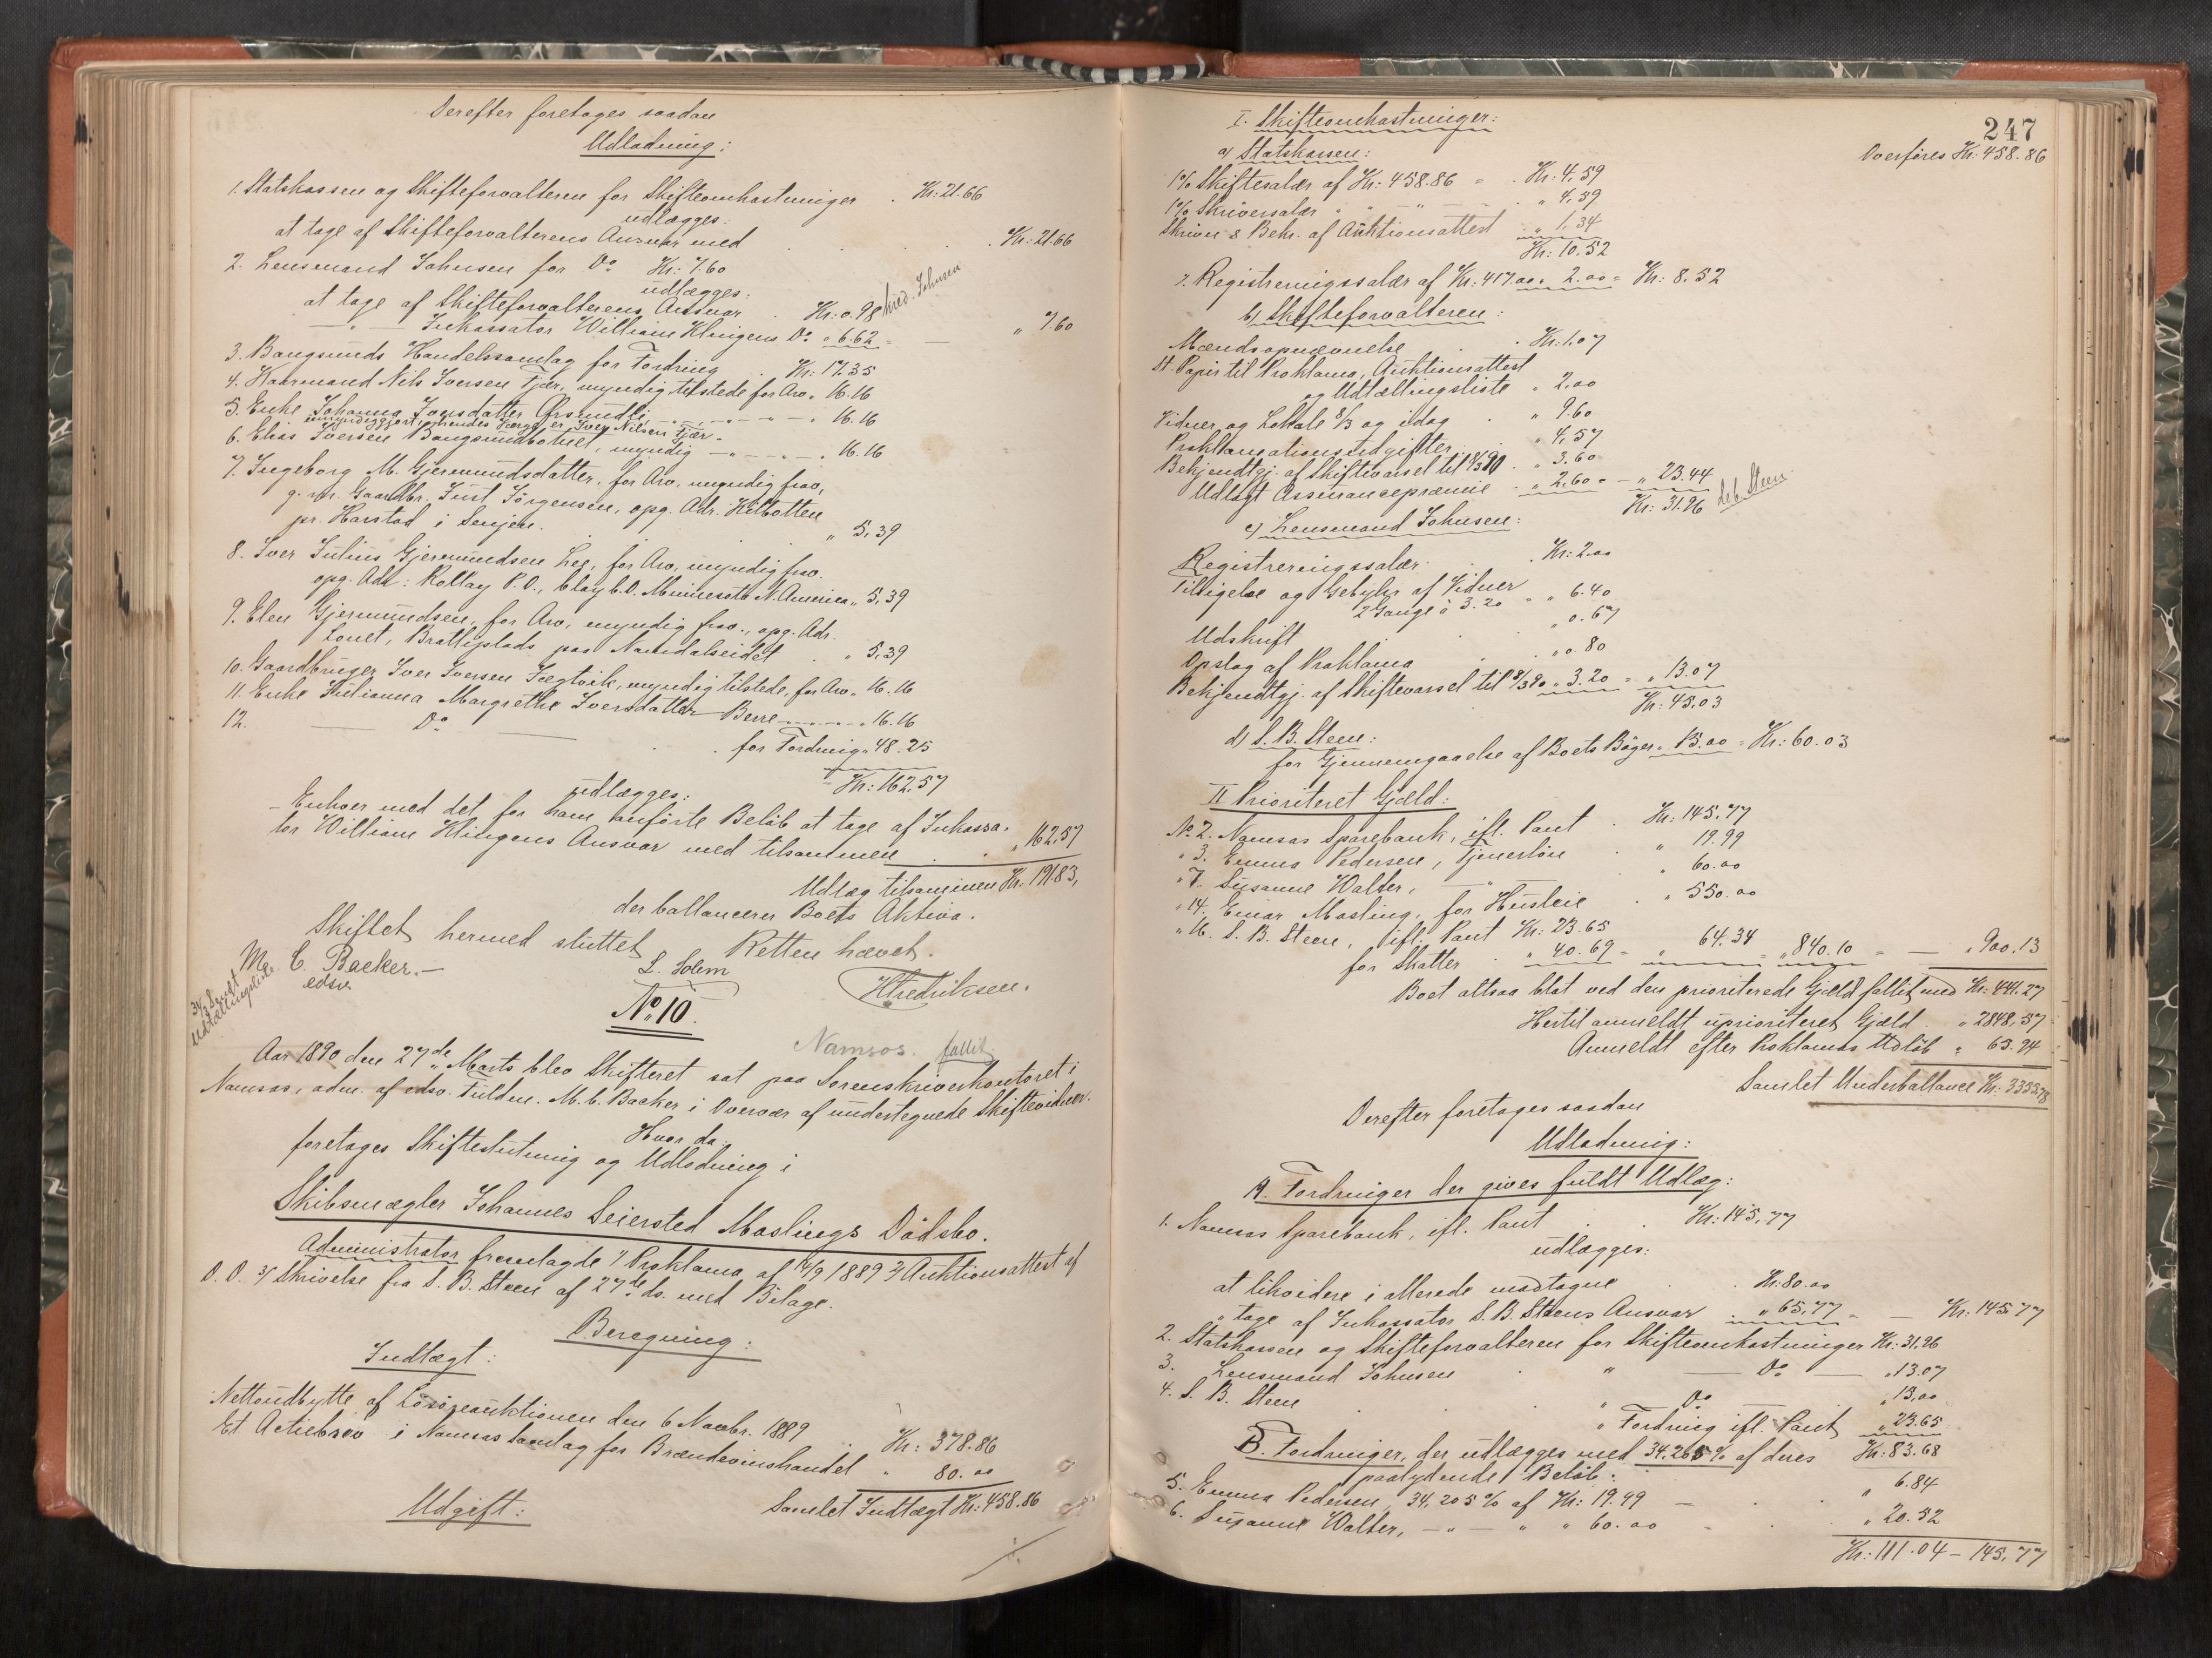 Derefter foretages saadan
Udlodning:
1. Statskassen og Skifteforvalteren for Skifteomkostninger . Kr: 21.66
udlægges:
at tage af Skifteforvalterens Ansvar med . . . Kr: 21.66
2. Lensmand Johnsen for Do Kr: 7.60
udlægges:
at tage af Skifteforvalterens Ansvar . Kr: 0.98 kred. Johnsen
— " — Inkassator William Klingens Do " 6.62 = — " 7.60
3. Bangsunds Handelssamlag for Fordring . Kr: 17.35
4. Kaarmand Nils Iversen Fjær, myndig tilstede for Arv " 16.16
5. Enke Johanna Iversdatter Ørsundli — " — " — " 16.16
umyndiggjort, hendes Værge er Iver Nilsen Fjær.
6. Elias Iversen Bangsundbotnet, myndig — " — " — " 16.16
7. Ingeborg M. Gjermundsdatter, for Arv, myndig frav.,
g. m. Gaardbr. Just Jörgensen, opg. Adr. Kilbotten
pr. Harstad i Senjen. . . " 5.39
8. Iver Julius Gjermundsen Lee, for Arv, myndig frav.
opg. Adr: Rollay P.O., Clay C.O. Minnesota N. America " 5.39
9. Elen Gjermundsen, for Arv, myndig frav., opg. Adr.
Lonet, Bratliplads paa Namdalseidet . " 5.39
10. Gaardbruger Iver Iversen Jægtvik, myndig tilstede, for Arv " 16.16
11. Enke Julianna Margrethe Iversdatter Berre — " — " 16.16
12. — Do — . for Fordring " 48.25
Kr: 162.57
udlægges:
— Enhver med det for ham anførte Beløb at tage af Inkassa-
tor William Klingens Ansvar med tilsammen . . " 162.57
Udlæg tilsammen Kr. 191.83,
der ballancerer Boets Aktiva.
Skiftet hermed sluttet Retten hævet.
M. C. Backer.— L. Solem HFredriksen.
edsv.
Sendt Udtællingsliste
No 10.
Namsos. fallit
Aar 1890 den 27de Marts blev Skifteret sat paa Sorenskriverkontoret i
Namsos, adm. af edsv. Fuldm. M. C. Backer i Overvær af undertegnede Skiftevidner.
Hvor da:
foretages Skifteslutning og Udlodning i
Skibsmægler Johannes Seiersted Maslings Dödsbo.
Administrator fremlagde 1) Proklama af 14/9 1889 2) Auktionsattest af
D.D. 3) Skrivelse fra S. B. Steen af 27de ds. med Bilage.
Beregning:
Indtægt:
Nettoudbytte af Lösöreauktionen den 6 Novbr. 1889 . Kr: 378.86
Et Actiebrev i Namsos Samlag for Brændevinshandel " 80.00
Samlet Indtægt Kr: 458.86
Udgift:
247
Overføres Kr: 458.86
I. Skifteomkostninger:
a) Statskassen:
1% Skiftesalær af Kr: 458.86 = . Kr: 4,59
1% Skriversalær " " — " — . " 4,59
Skriver & Bekr. af Auktionsattest . " 1,34
Kr: 10.52
÷ Registreringssalær af Kr: 417.00 " 2.00 = Kr: 8.52
b) Skifteforvalteren:
Mændsopnævnelse . . Kr: 1.07
St. Papir til Proklama, Auktionsattest
og Udtællingsliste " 2.00
Vidner og Lokale 8/3 og idag . " 9.60
Proklamationsudgifter . " 4.57
Bekjendtgj. af Skiftevarsel til 8/3 90 . " 3.60
Udlagt Assurancepræmie . " 2.60 = — " 23.44
Kr: 31.96 deb. Steen
c) Lensmand Johnsen:
Registreringssalær . . Kr: 2.00
Tilsigelse og Gebyhr af Vidner
2 Gange à 3.20 " " 6.40
Udskrift . . " 0.67
Opslag af Proklama . . " 0.80
Bekjendtgj. af Skiftevarsel til 8/3 90 " 3.20 = " 13.07
Kr: 45.03
d) S. B. Steen:
for Gjennemgaaelse af Boets Böger " 15.00 = Kr: 60.03
II Prioriteret Gjæld:
No 2. Namsos Sparebank, ifl. Pant . Kr: 145.77
" 3. Emma Pedersen, Tjenerlön . " 19.99
" 7. Susanne Walter, — " — . " 60.00
" 14. Einar Masling, for Husleie . " 550.00
" 16. S. B. Steen, ifl. Pant Kr: 23.65
for Skatter . " 40.69 = " 64.34 = " 840.10 = — " 900.13
Boet altsaa blot ved den prioriterede Gjæld fallit med Kr: 441.27
Hertil anmeldt uprioriteret Gjæld . " 2848,57
Anmeldt efter Proklamas Udløb " 63.94
Samlet Underballance Kr: 3353.78
Derefter foretages saadan
Udlodning:
A. Fordringer der gives fuldt Udlæg:
1. Namsos Sparebank, ifl. Pant . . Kr: 145,77
udlægges:
at likvidere i allerede modtagne . . Kr: 80.00
" tage af Inkassator S. B. Steens Ansvar . " 65,77 = — Kr: 145,77
2. Statskassen og Skifteforvalteren for Skifteomkostninger Kr: 31.96
3. Lensmand Johnsen . " — Do — " 13.07
4. S. B. Steen . . " Do — " 15.00
" Fordring ifl. Pant " 23.65
Kr: 83.68
B. Fordringer, der udlægges med 34.205 % af deres
paalydende Beløb:
5. Emma Pedersen, 34,205 % af Kr: 19.99 — . " 6.84
6. Susanne Walter, — " — " " 60.00 = . " 20.52
Kr: 111.04 — 145,77